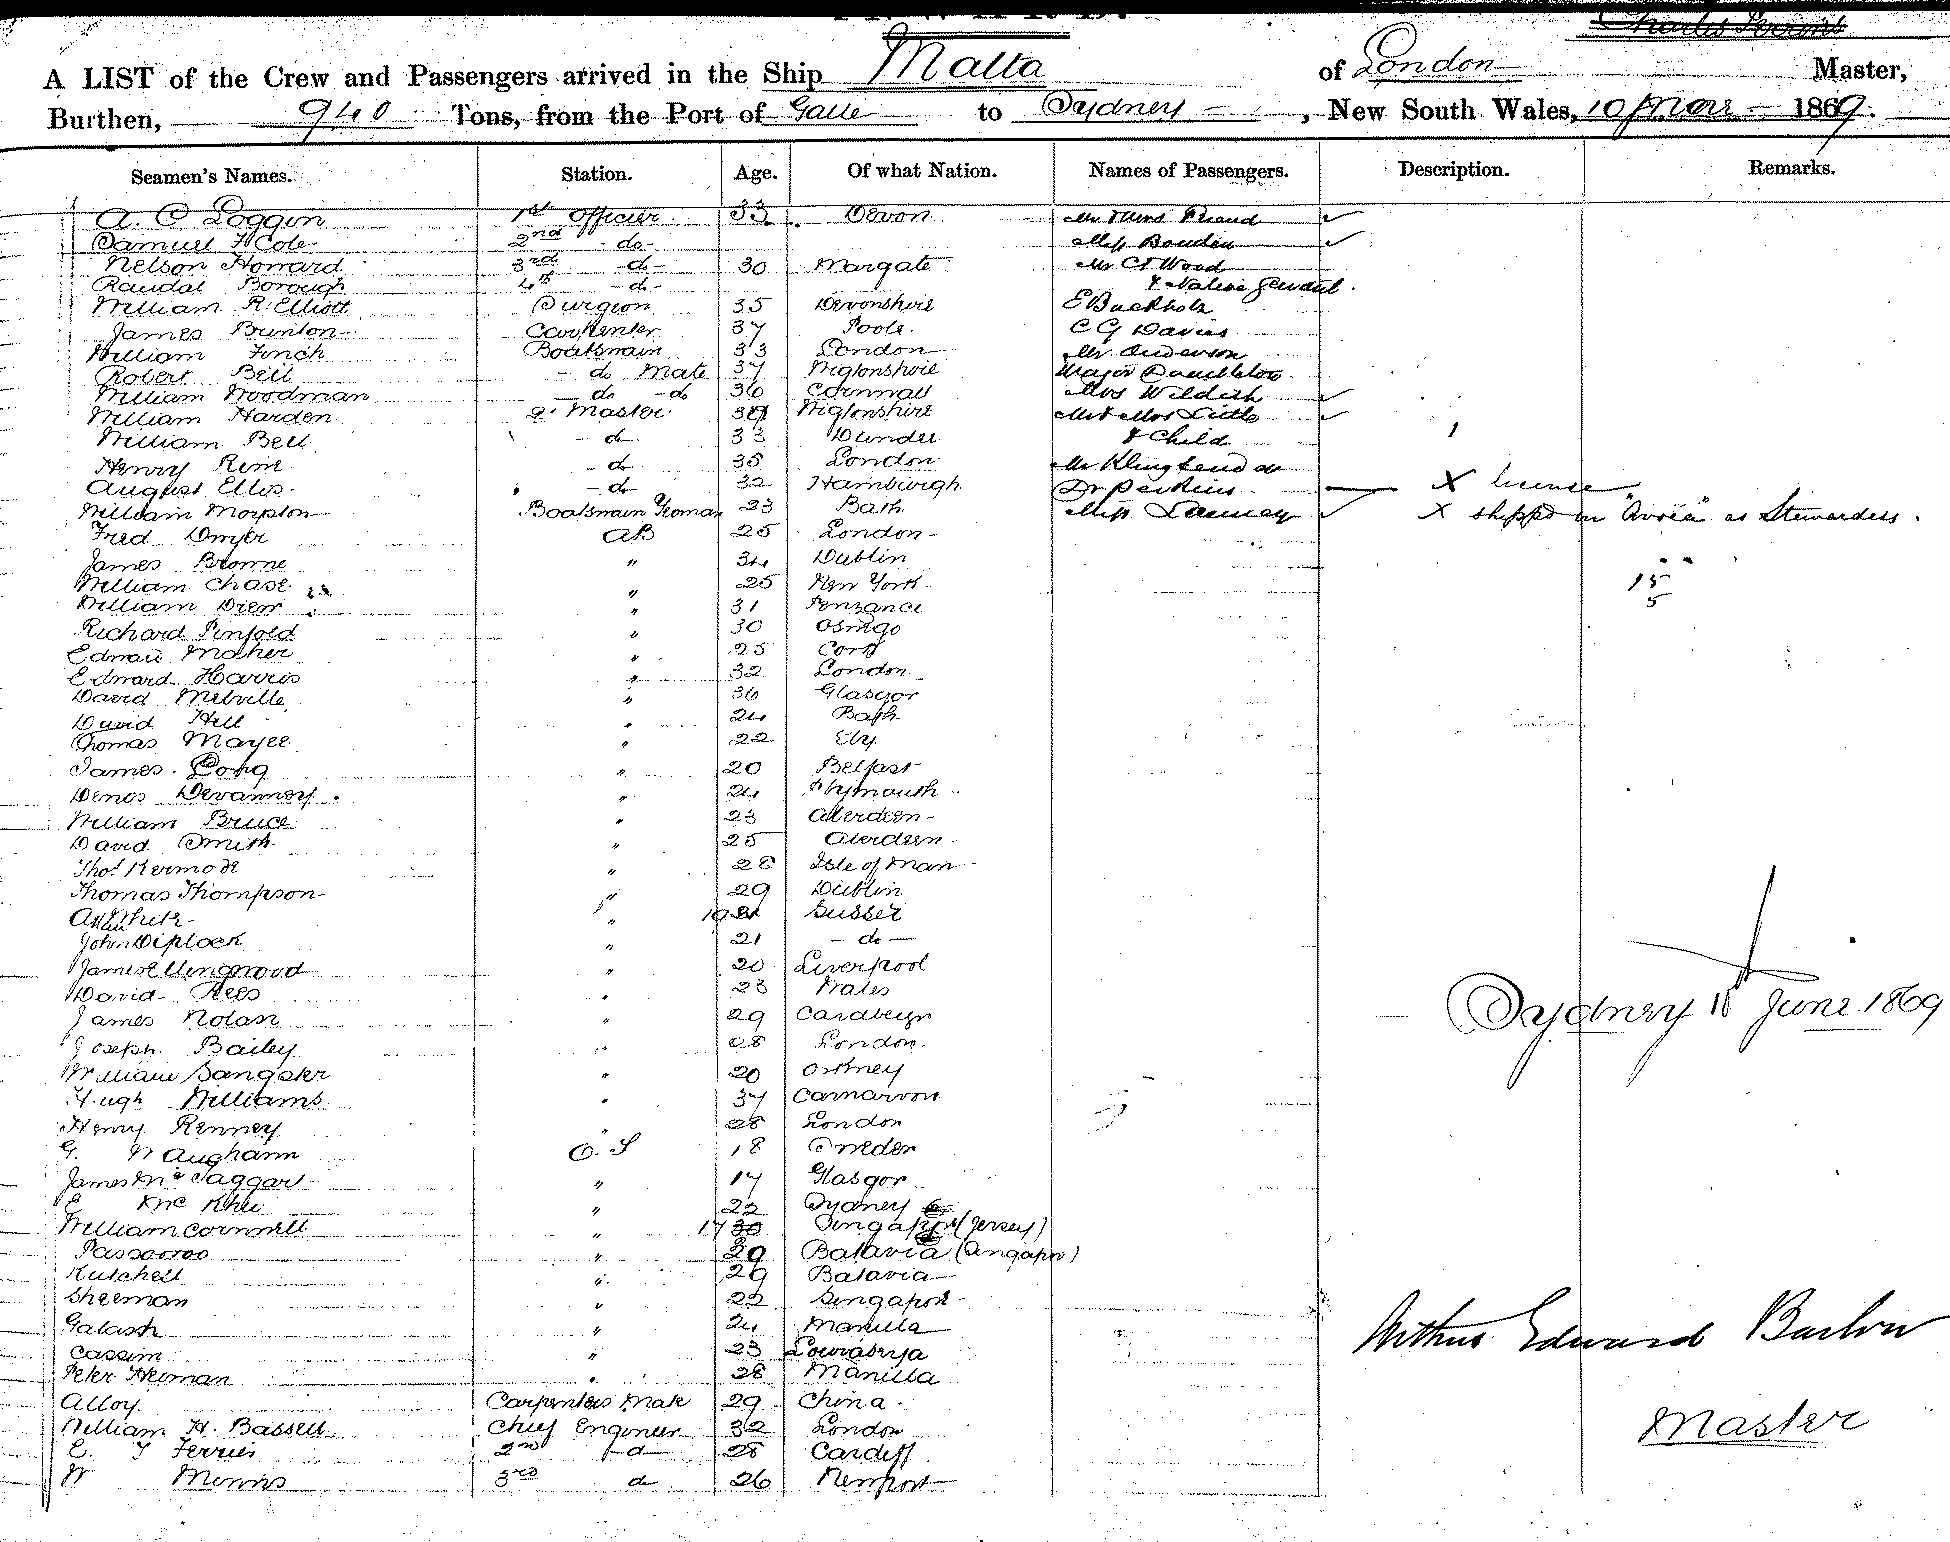 A LIST of the Crew and Passengers arrived in the Ship Malta of London Master,
Burthen, 940 Tons, from the Port of Galle to Sydney, New South Wales, 10 1869.
Seamen's Names. Station. Age. Of what Nation. Names of Passengers. Description. Remarks.
A. C Loggin 1st Officer 33 Devon
Samuel H Cole 2nd - do - Miss Bowden
Nelson Howard 3rd - do - 30 Margate Mr Wood
Randal Borough 4th - do - & Native Servant.
William R. Elliott Surgeon 35 Devonshire E Buckholz
James Brunton Carpenter 37 Poole. C G Davies
William Finch Boatswain 33 London Mr Anderson
Robert Bell - do Mate 37 Wigtonshire Major
William Woodman - do - do 36 Cornwall Mrs
William Harden Q. Master 39 Wigtonshire Mr & Mrs Little
William Bell - do 33 Dundee & Child
Henry - do 35 London Mr
August Ellis - do 32 Hamburgh Dr Perkins X license
William Boatswain Yeoman 23 Bath Miss X shipped in "Avoca" as Stewardess.
Fred Dwyer AB 25 London
James Browne " 34 Dublin
William Chase " 25 New York 15
William Drew " 31 Penzance 5
Richard Pinfold " 30 Oswego
Edward Maher " 25 Cork
Edward Harris " 32 London
David Melville " 36 Glasgow
David Hill " 24 Bath
Thomas Mayee " 22 Ely
James Long " 20 Belfast
Denos Devanney " 24 Plymouth
William Bruce " 23 Aberdeen
David Smith " 25 Aberdeen
Thos Kermode " 28 Isle of Man
Thomas Thompson " 29 Dublin
" 19 Sussex
John Diplock " 21 - do -
James Ellingwood " 20 Liverpool
David Rees " 23 Wales
James Nolan " 29 Sydney June 1869
Joseph Bailey " 28 London
William Sangster " 20 Orkney
Hugh Williams " 37 Carnarvon
Henry Kenney " 28 London
G. Waughann O. S 18 Sweden
James McTaggart " 17 Glasgow
E " 22 Sydney
William Cornwell " 17 Singapore (Jersey)
" 29 Batavia (Singapor)
Kutchell " 29 Batavia
Sheeman " 22 Singapore
Galash " 24 Manilla
Cassim " 23
Arthur Edward Barlow
Peter Heman " 28 Manilla
Alloy Carpenters Mate 29 China
William H. Bassett Chief Engineer 32 London
Master
E. J Ferries 2nd do 28 Cardiff
W Morris 3rd do 26 Newport